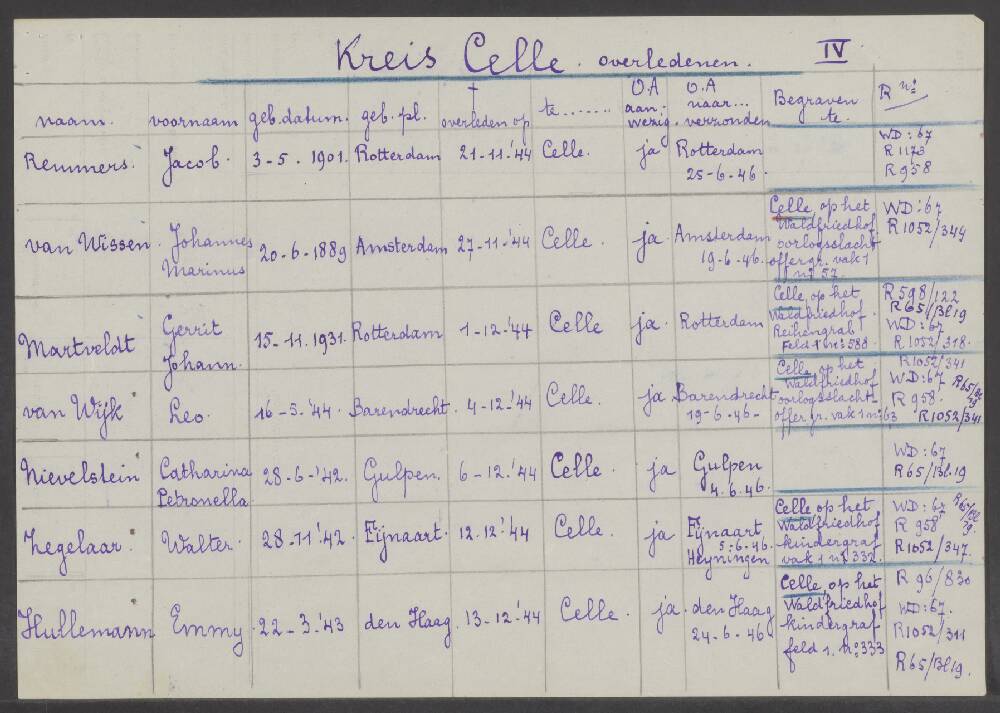 Kreis Celle. overledenen. IV
naam. voornaam geb. datum. geb. pl. † overleden op te ........ O.A aanwezig. O.A naar... verzonden Begraven te. R no:
Remmers. Jacob. 3-5. 1901. Rotterdam 21-11-'44 Celle. ja Rotterdam 25-6-46. WD: 67 R 1173 R 958
van Wissen. Johannes Marinus 20-6-1889 Amsterdam 27-11-'44 Celle. ja. Amsterdam 19-6-46. Celle, op het Waldfriedhof oorlogsslacht offer gr. vak 1 no 57. WD: 67 R 1052/349
Martveldt Gerrit Johann. 15-11.1931. Rotterdam 1-12-'44 Celle ja. Rotterdam Celle, op het Waldfriedhof. Reihengrab Feld 1 no: 588. R 598/122 R 65/Bl 19 WD: 67 R 1052/318.
van Wijk Leo 16-5.'44. Barendrecht. 4-12-'44 Celle. ja. Barendrecht 19-6-46- Celle, op het Waldfriedhof oorlogsslacht- offer gr. vak 1 no: 63 R 1052/341 WD: 67 R 958. R 1052/341
Nievelstein Catharina Petronella. 28-6-'42. Gulpen. 6-12.'44 Celle. ja Gulpen 4.6.46. WD: 67 R 65/Bl. 19
Zegelaar. Walter. 28-11.'42. Fijnaart. 12.12.'44 Celle. ja Fijnaart 5-6-46. Heyningen Celle op het Waldfriedhof kindergraf vak 1 no 332. WD: 67 R 958 R 1052/347.
Hullemann Emmy 22-3.'43 den Haag. 13-12-'44 Celle. ja. den Haag 24-6-46 Celle op het Waldfriedhof kindergraf feld 1. no: 333 R 96/830 WD: 67. R 1052/311 R 65/Bl 19.